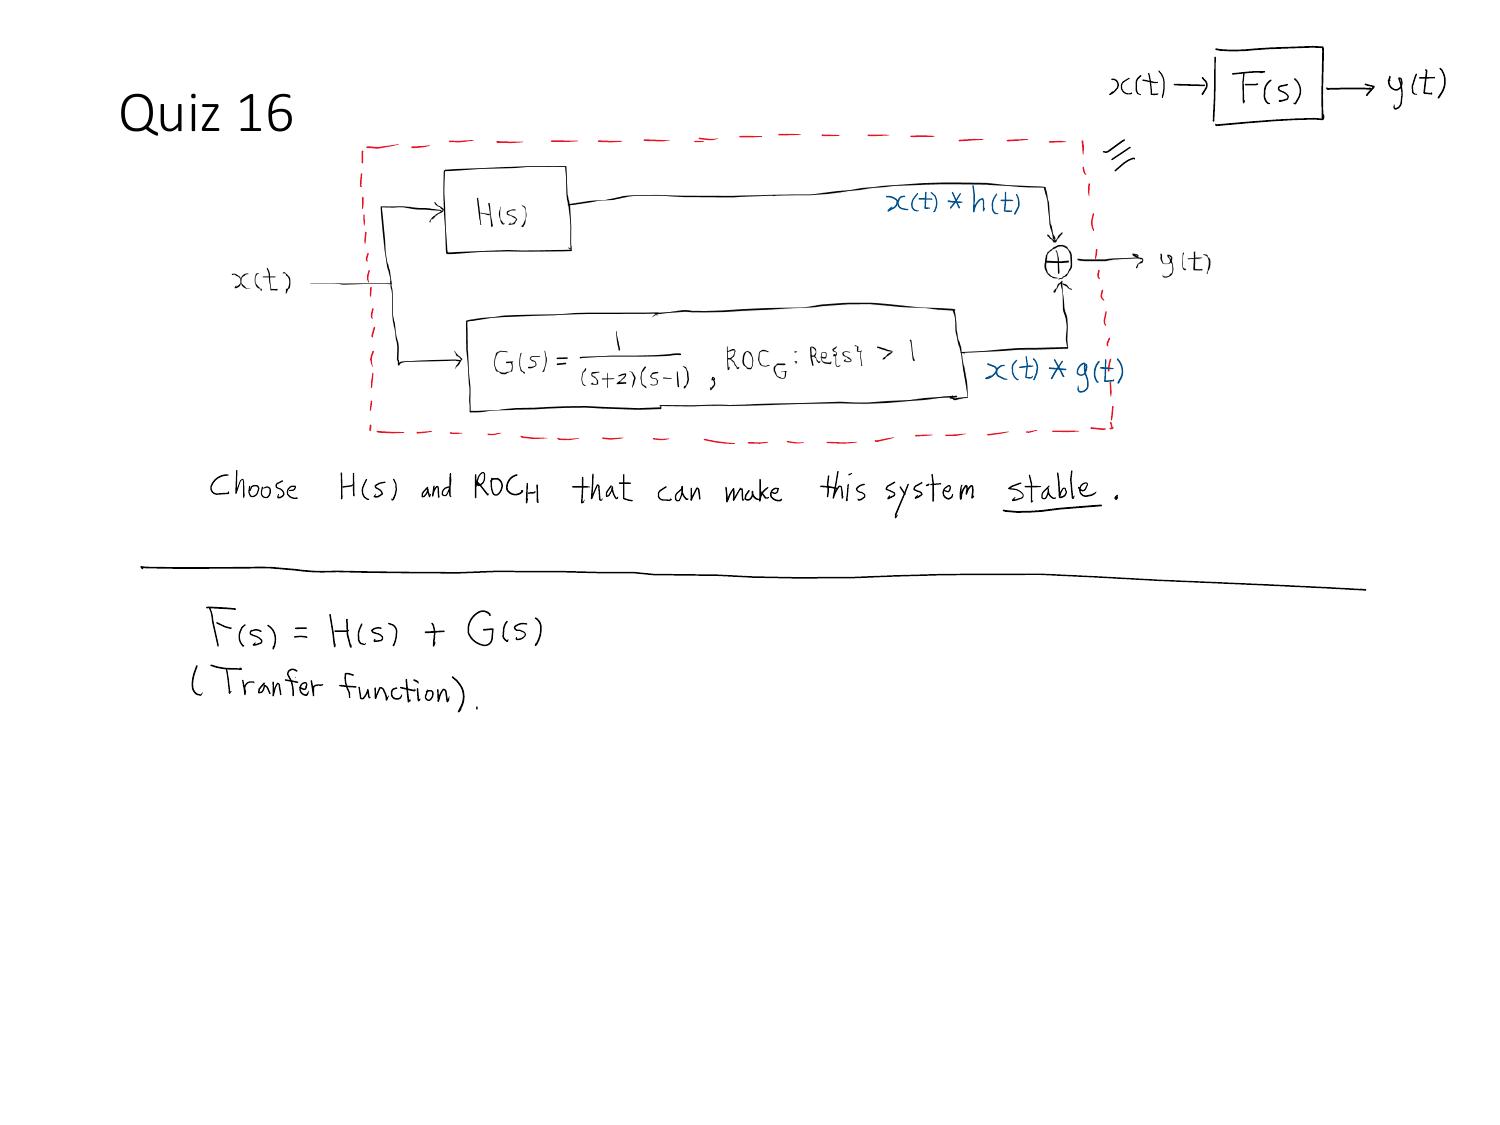 x(t) → F(s) → y(t)
Quiz 16
H(s)
x(t) * h(t)
x(t)
⊕ → y(t)
G(s) = 1/((s+2)(s-1)) , ROC_G : Re{s} > 1
x(t) * g(t)
Choose H(s) and ROC_H that can make this system stable.
F(s) = H(s) + G(s)
(Tranfer function).